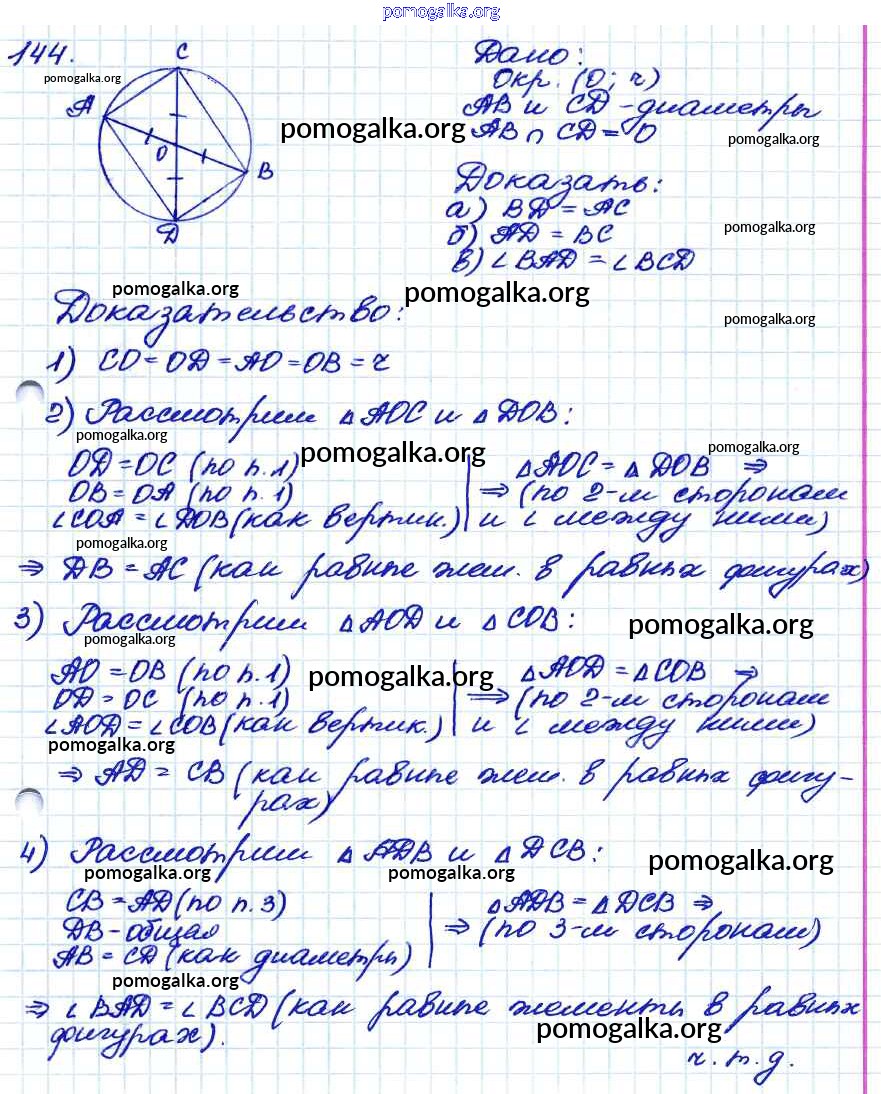 pomogalka.org
144.
C
pomogalka.org
A
O
B
D
Дано:
Окр. (O; r)
AB и CD - диаметры
pomogalka.org
AB ∩ CD = O
pomogalka.org
Доказать:
а) BD = AC
pomogalka.org
б) AD = BC
в) ∠BAD = ∠BCD
pomogalka.org
pomogalka.org
Доказательство:
pomogalka.org
1) CO = OD = AO = OB = r
2) Рассмотрим △AOC и △DOB:
pomogalka.org
pomogalka.org
pomogalka.org
OD = OC (по п.1) △AOC = △DOB ⇒
OB = OA (по п.1) ⇒ (по 2-м сторонам
∠COA = ∠DOB (как вертик.) и ∠ между ними)
pomogalka.org
⇒ DB = AC (как равные элем. в равных фигурах)
3) Рассмотрим △AOD и △COB:
pomogalka.org
pomogalka.org
AO = OB (по п.1) △AOD = △COB ⇒
pomogalka.org
OD = OC (по п.1) ⇒ (по 2-м сторонам
∠AOD = ∠COB (как вертик.) и ∠ между ними)
pomogalka.org
⇒ AD = CB (как равные элем. в равных фигу-
рах)
4) Рассмотрим △ADB и △DCB:
pomogalka.org
pomogalka.org
pomogalka.org
CB = AD (по п. 3) △ADB = △DCB ⇒
DB - общая ⇒ (по 3-м сторонам)
AB = CD (как диаметры)
pomogalka.org
⇒ ∠BAD = ∠BCD (как равные элементы в равных
фигурах).
pomogalka.org
ч.т.д.